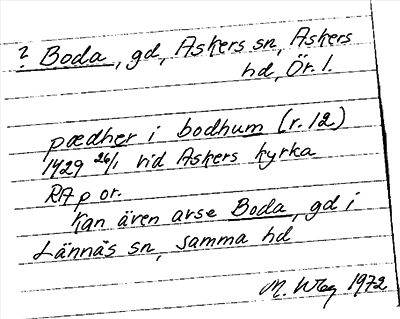 ? Boda, gd, Askers sn, Askers
hd, Ör. l.
pædher i bodhum (r. 12)
1429 26/1 vid Askers kyrka
RA p or.
Kan även avse Boda, gd i
Lännäs sn, samma hd
M. Wbg 1972